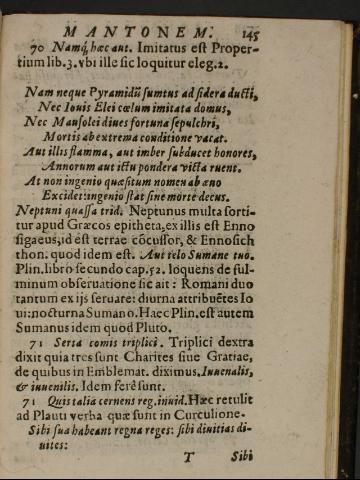 MANTONEM. 145
70 Namq́, hæc aut. Imitatus est Proper-
tium lib.3. vbi ille sic loquitur eleg.2.
Nam neque Pyramidũ sumtus ad sidera ducti,
Nec Iouis Elei cœlum imitata domus,
Nec Mausolei diues fortuna sepulchri,
Mortis ab extrema conditione vacat.
Aut illis flamma, aut imber subducet honores,
Annorum aut ictu pondera victa ruent.
At non ingenio quæsitum nomen ab æuo
Excidet: ingenio stat sine morte decus.
Neptuni quassa trid. Neptunus multa sorti-
tur apud Græcos epitheta, ex illis est Enno
sigaeus, id est terrae cõcussor, & Ennosich
thon. quod idem est. Aut telo Sumane tuo.
Plin. libro secundo cap.52. loquens de ful-
minum obseruatione sic ait: Romani duo
tantum ex ijs seruare: diurna attribuẽtes Io
ui: nocturna Sumano. Haec Plin. est autem
Sumanus idem quod Pluto.
71 Serta comis triplici. Triplici dextra
dixit quia tres sunt Charites siue Gratiae,
de quibus in Emblemat. diximus, Iuuenalis,
& iuuenilis. Idem ferè sunt.
71 Quis talia cernens reg. inuid. Hæc retulit
ad Plauti verba quæ sunt in Curculione.
Sibi sua habeant regna reges: sibi diuitias di-
uites:
T Sibi